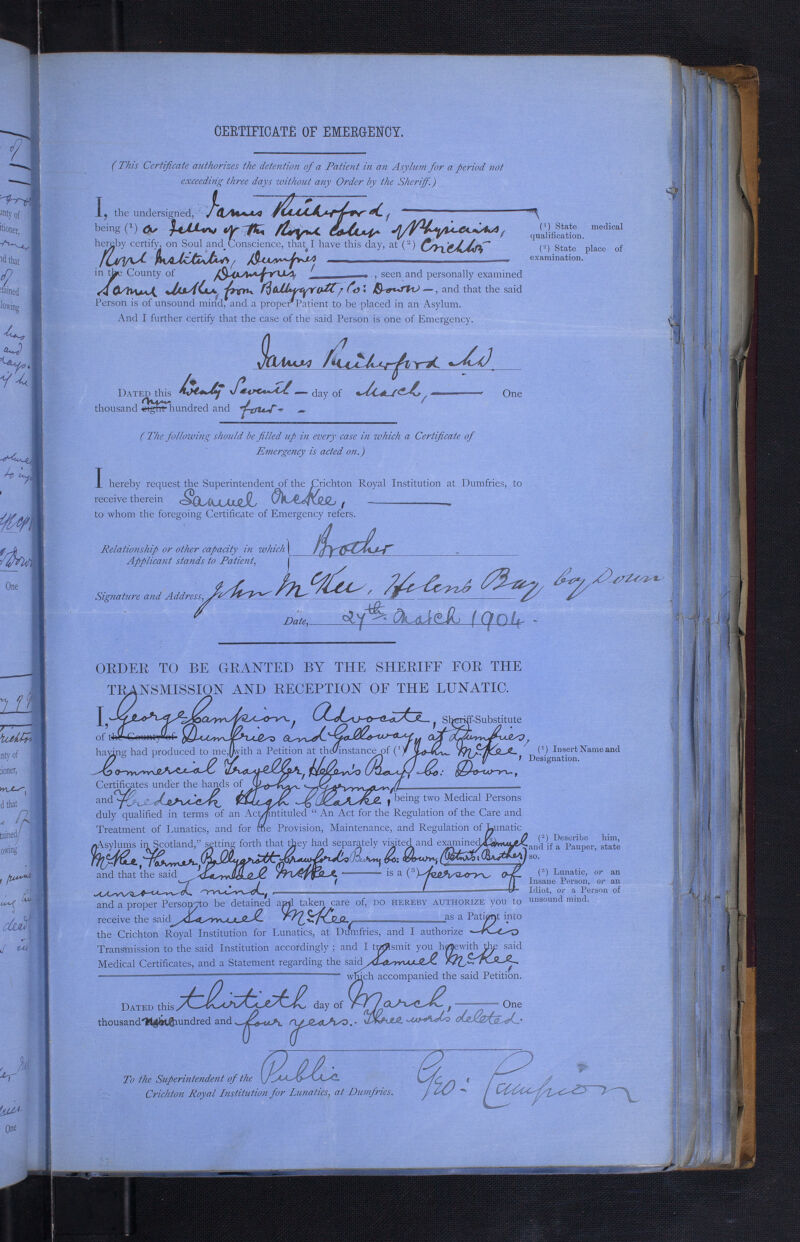 CERTIFICATE OF EMERGENCY.
(This Certificate authorizes the detention of a Patient in an Asylum for a period not
exceeding three days without any Order by the Sheriff.)
I, the undersigned, James Rutherford,
being (¹) a Fellow of the Royal College of Physicians,
hereby certify, on Soul and Conscience, that I have this day, at (²) Crichton
Royal Institution, Dumfries
in the County of Dumfries, seen and personally examined
Samuel McKee from Ballygratt, Co: Down —, and that the said
Person is of unsound mind, and a proper Patient to be placed in an Asylum.
And I further certify that the case of the said Person is one of Emergency.
(¹) State medical
qualification.
(²) State place of
examination.
James Rutherford MD.
DATED this twenty seventh — day of March, One
thousand eight nine hundred and four - -
(The following should be filled up in every case in which a Certificate of
Emergency is acted on.)
I hereby request the Superintendent of the Crichton Royal Institution at Dumfries, to
receive therein Samuel McKee,
to whom the foregoing Certificate of Emergency refers.
Relationship or other capacity in which
Applicant stands to Patient,
Brother
Signature and Address, John McKee, Helens Bay Coy Down
Date, 27th March 1904 -
ORDER TO BE GRANTED BY THE SHERIFF FOR THE
TRANSMISSION AND RECEPTION OF THE LUNATIC.
I, George Campion, Advocate, Sheriff-Substitute
of the County of Dumfries and Galloway, at Dumfries,
having had produced to me, with a Petition at the instance of (¹) John McKee,
Commercial Traveller, Helen's Bay, Co: Down,
Certificates under the hands of John Gorman
and Frederick Hugh Clarke, being two Medical Persons
duly qualified in terms of an Act intituled "An Act for the Regulation of the Care and
Treatment of Lunatics, and for the Provision, Maintenance, and Regulation of Lunatic
Asylums in Scotland," setting forth that they had separately visited and examined Samuel
McKee, Farmer, Ballygrott Crawfords Burn, Co: Down, (Petnr's: Brother)
and that the said Samuel McKee — is a (³) person of
unsound mind,
and a proper Person to be detained and taken care of, DO HEREBY AUTHORIZE YOU to
receive the said Samuel McKee, as a Patient into
the Crichton Royal Institution for Lunatics, at Dumfries, and I authorize his
Transmission to the said Institution accordingly; and I transmit you herewith the said
Medical Certificates, and a Statement regarding the said Samuel McKee
which accompanied the said Petition.
(¹) Insert Name and
Designation.
(²) Describe him,
and if a Pauper, state
so.
(³) Lunatic, or an
Insane Person, or an
Idiot, or a Person of
unsound mind.
DATED this thirtieth day of March, One
thousand nine hundred and four years. - Three words deleted.
To the Superintendent of the Public
Crichton Royal Institution for Lunatics, at Dumfries.
Geo: Campion